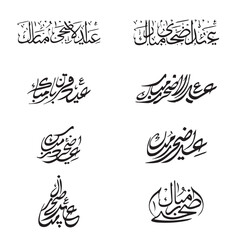 عيد أضحى مبارك
عيد الأضحى مبارك
عيد الأضحى مبارك
عيد قربان مبارك
عيد أضحى مبارك
عيد أضحى مبارك
أضحى مبارك
عيد أضحى